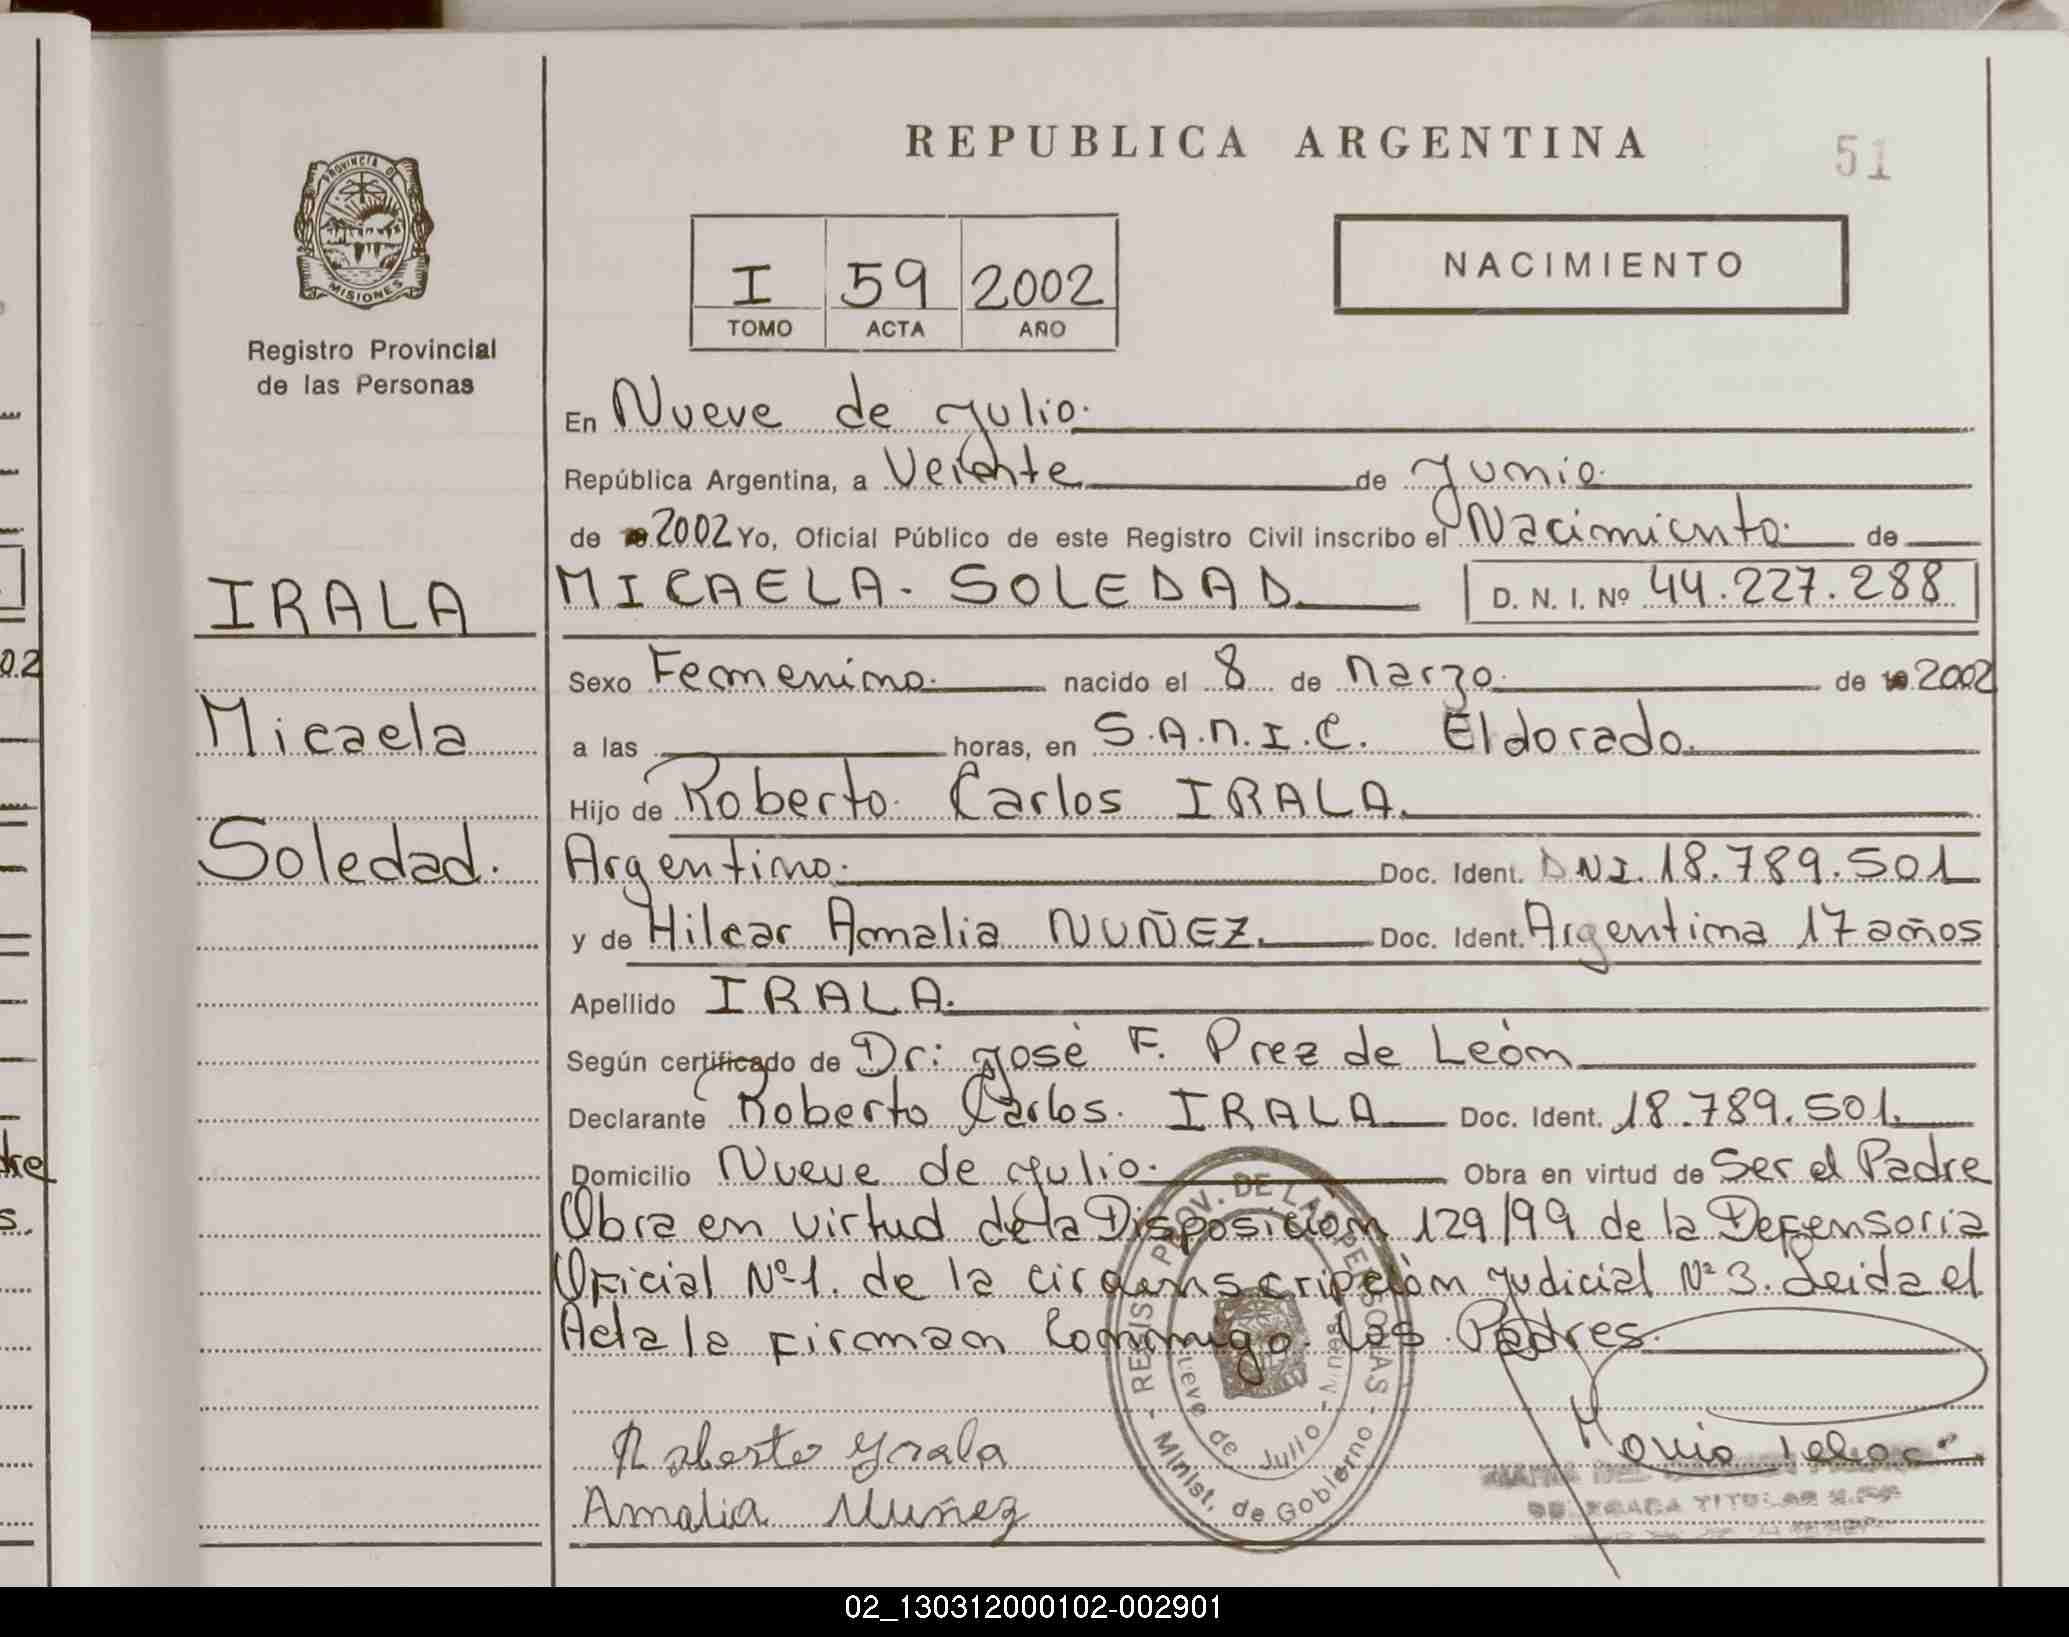 REPUBLICA ARGENTINA
51
PROVINCIA DE
MISIONES
Registro Provincial
de las Personas
I 59 2002
TOMO ACTA AÑO
NACIMIENTO
En Nueve de Julio.
República Argentina, a Veinte de Junio.
de 2002 Yo, Oficial Público de este Registro Civil inscribo el Nacimiento de
IRALA
MICAELA. SOLEDAD D. N. I. Nº 44.227.288
Sexo Femenino. nacido el 8 de Marzo. de 2002
Micaela
a las horas, en S.A.M.I.C. Eldorado.
Hijo de Roberto. Carlos IRALA.
Soledad.
Argentino. Doc. Ident. DNI. 18.789.501
y de Hilcar Amalia NUÑEZ. Doc. Ident. Argentina 17 años
Apellido IRALA.
Según certificado de Dr: José F. Prez de León
Declarante Roberto Carlos. IRALA Doc. Ident. 18.789.501.
Domicilio Nueve de Julio. Obra en virtud de Ser el Padre
Obra en virtud de la Disposición 129/99 de la Defensoria
Oficial Nº1. de la circunscripción Judicial Nº 3. Leida el
Acta la firman Conmigo los Padres.
REGIS. PROV. DE LAS PERSONAS
Nueve de Julio - Mnes
- Minist. de Gobierno -
Roberto Irala
Amalia Nuñez
DELEGADA TITULAR
02_130312000102-002901